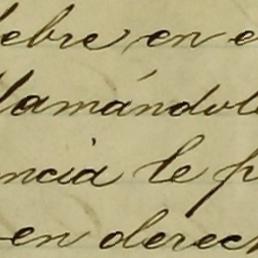 lebre en e
llamándole
ncia le p
en derech